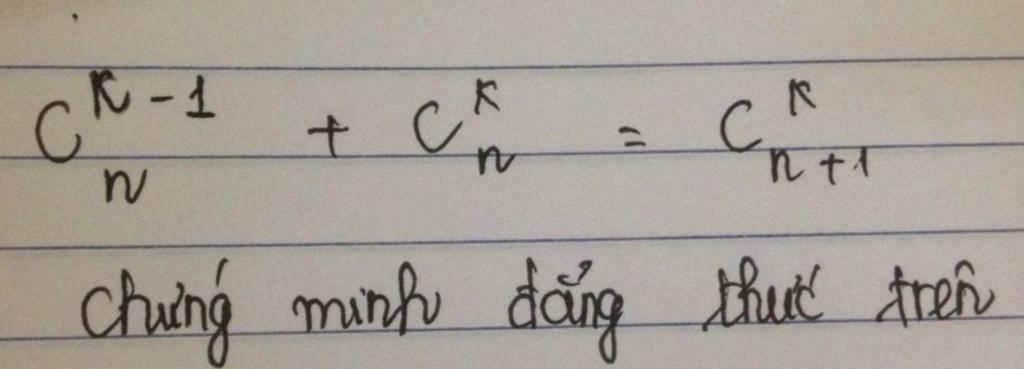 C_n^{k-1} + C_n^k = C_{n+1}^k
Chứng minh đẳng thức trên